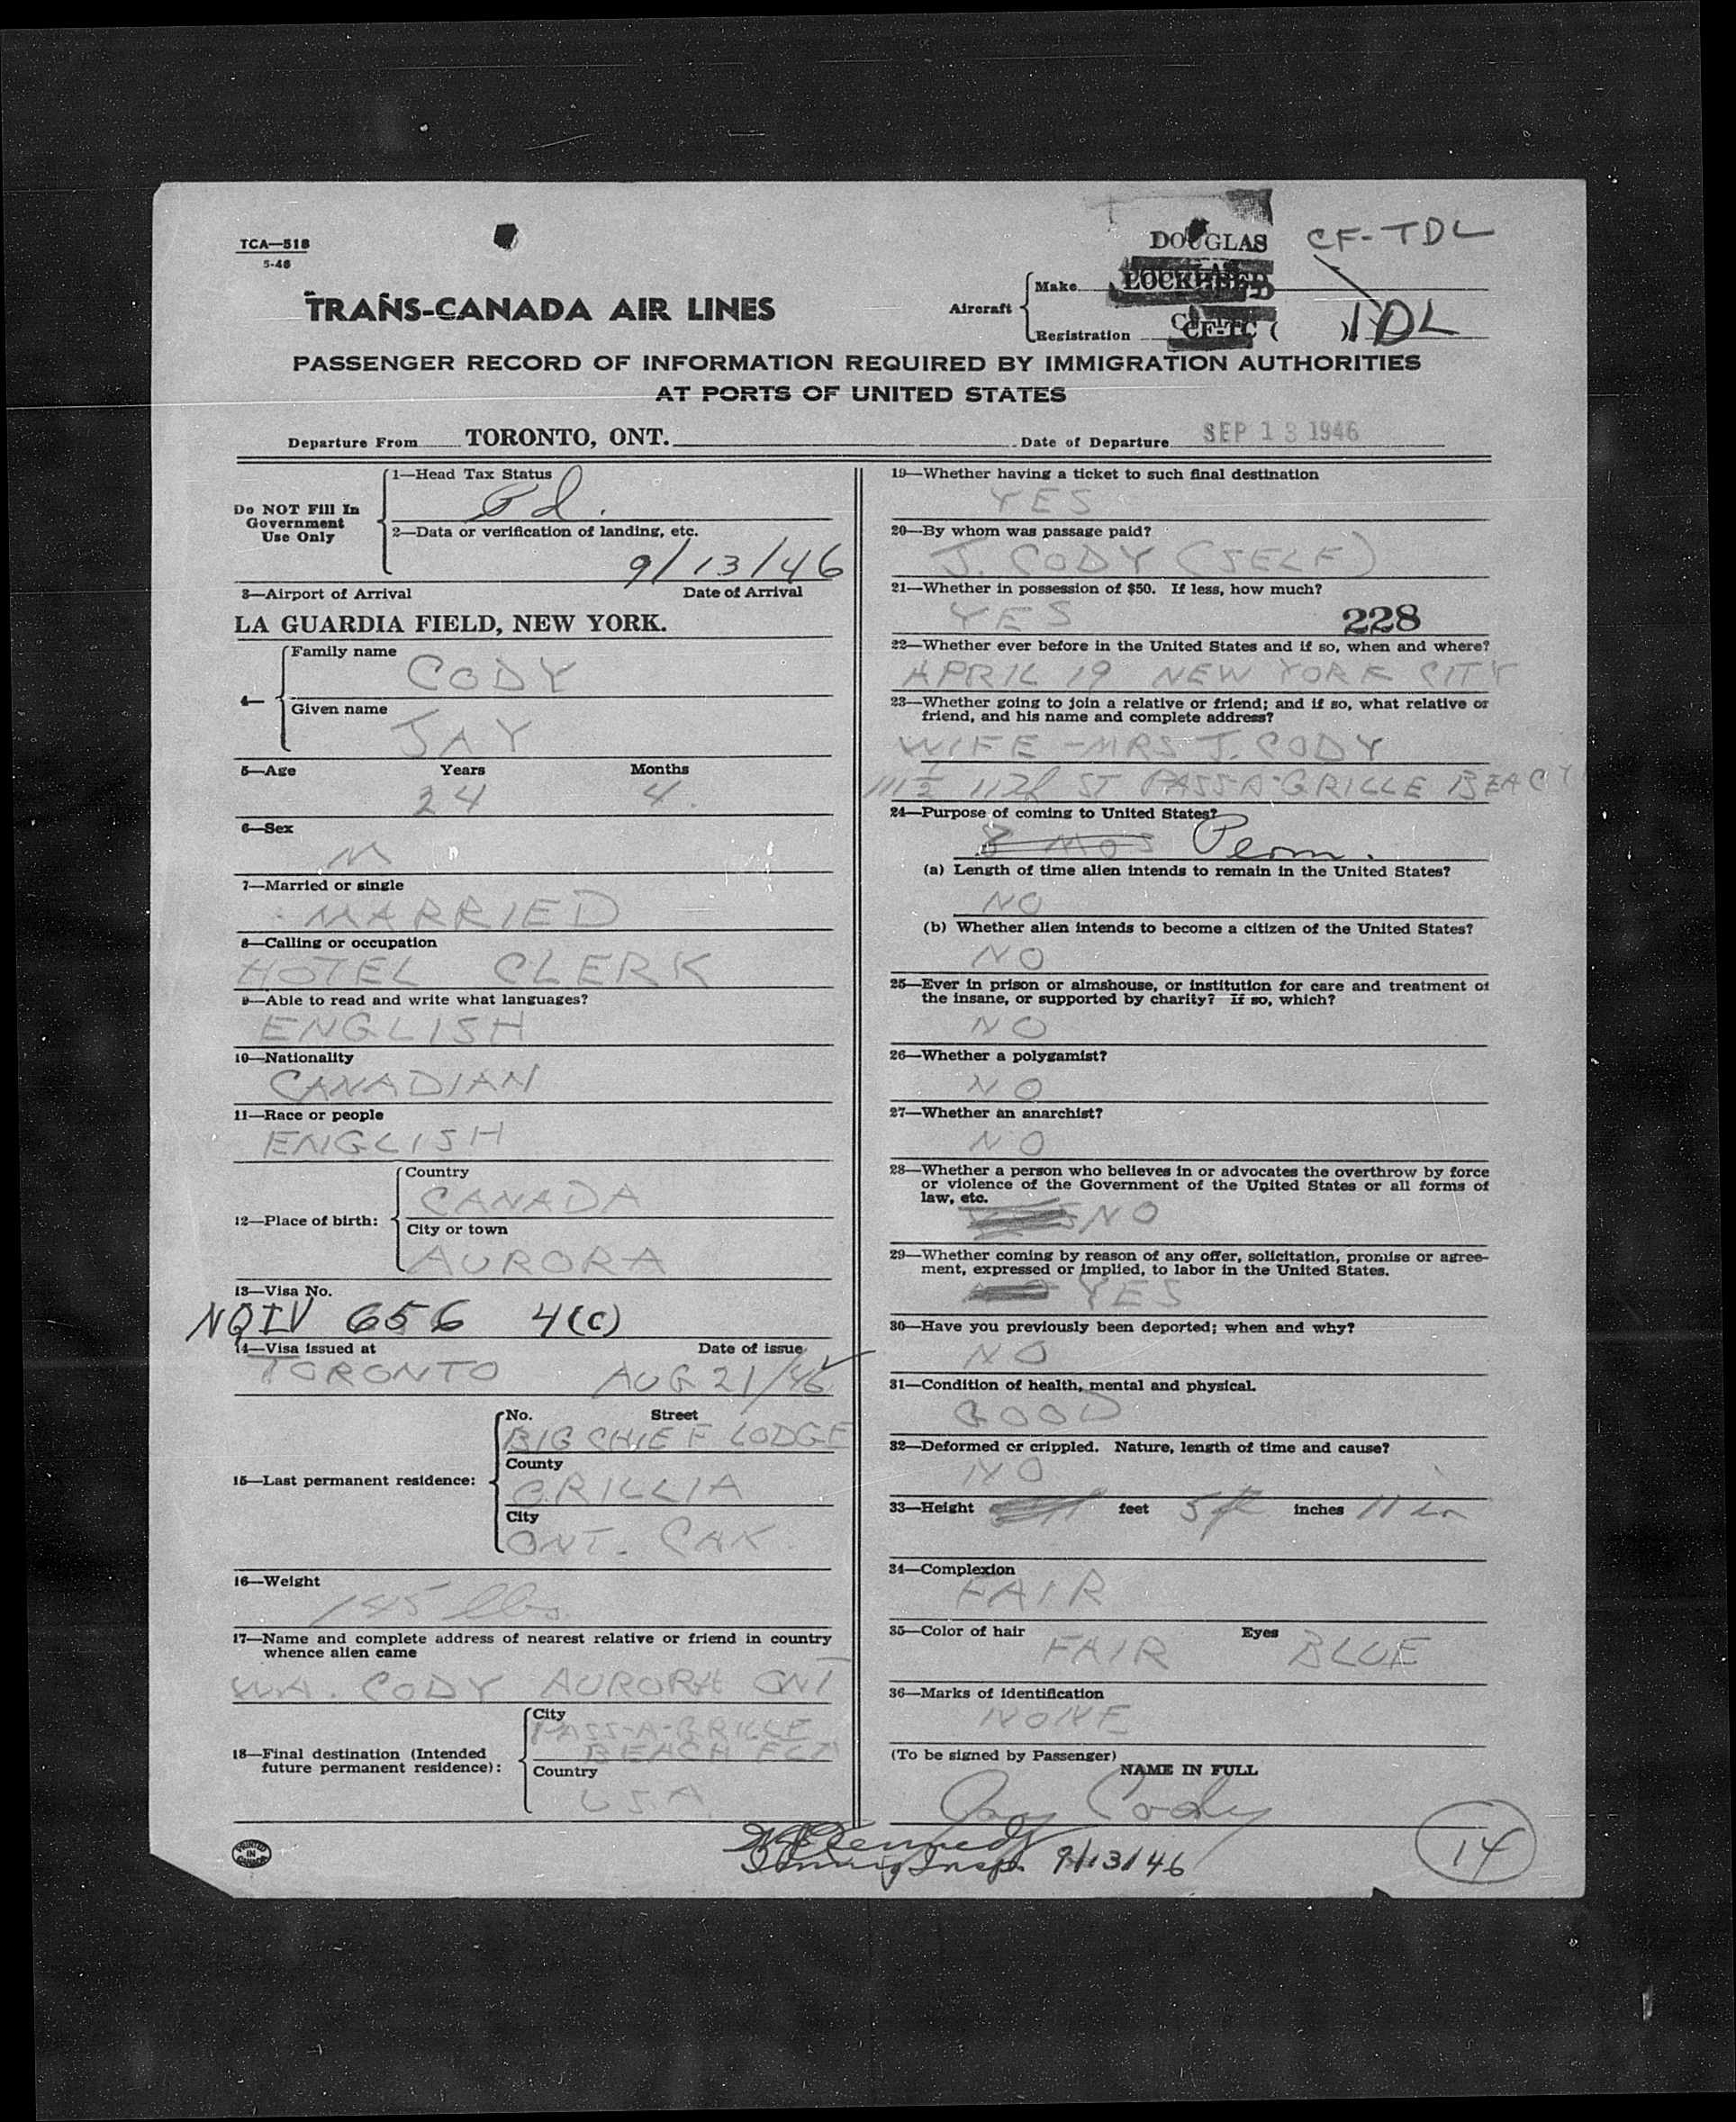 TCA—518
5-46
DOUGLAS CF-TDL
TRANS-CANADA AIR LINES
Aircraft
Make LOCKHEED
Registration CF-TC ( ) TDL
PASSENGER RECORD OF INFORMATION REQUIRED BY IMMIGRATION AUTHORITIES
AT PORTS OF UNITED STATES
Departure From TORONTO, ONT. Date of Departure SEP 13 1946
Do NOT Fill In
Government
Use Only
1—Head Tax Status
Pd.
2—Data or verification of landing, etc.
9/13/46
3—Airport of Arrival Date of Arrival
LA GUARDIA FIELD, NEW YORK.
4—
Family name
CODY
Given name
JAY
5—Age Years Months
24 4.
6—Sex
M
7—Married or single
MARRIED
8—Calling or occupation
HOTEL CLERK
9—Able to read and write what languages?
ENGLISH
10—Nationality
CANADIAN
11—Race or people
ENGLISH
12—Place of birth:
Country
CANADA
City or town
AURORA
13—Visa No.
NQIV 656 4(C)
14—Visa issued at Date of issue
TORONTO AUG 21/46
15—Last permanent residence:
No. Street
BIG CHIEF LODGE
County
ORILLIA
City
ONT.
16—Weight
145 lbs
17—Name and complete address of nearest relative or friend in country
whence alien came
W.A. CODY AURORA ONT
18—Final destination (Intended
future permanent residence):
City
PASS-A-GRILLE
BEACH FLA
Country
USA
19—Whether having a ticket to such final destination
YES
20—By whom was passage paid?
J. CODY (SELF)
21—Whether in possession of $50. If less, how much?
YES 228
22—Whether ever before in the United States and if so, when and where?
APRIL 19 NEW YORK CITY
23—Whether going to join a relative or friend; and if so, what relative or
friend, and his name and complete address?
WIFE - MRS J. CODY
111½ 11th ST PASS-A-GRILLE BEACH
24—Purpose of coming to United States?
8 MOS Perm.
(a) Length of time alien intends to remain in the United States?
NO
(b) Whether alien intends to become a citizen of the United States?
NO
25—Ever in prison or almshouse, or institution for care and treatment of
the insane, or supported by charity? If so, which?
NO
26—Whether a polygamist?
NO
27—Whether an anarchist?
NO
28—Whether a person who believes in or advocates the overthrow by force
or violence of the Government of the United States or all forms of
law, etc.
NO
29—Whether coming by reason of any offer, solicitation, promise or agree-
ment, expressed or implied, to labor in the United States.
NO YES
30—Have you previously been deported; when and why?
NO
31—Condition of health, mental and physical.
GOOD
32—Deformed or crippled. Nature, length of time and cause?
NO
33—Height feet 5 ft inches 11 in
34—Complexion
FAIR
35—Color of hair Eyes
FAIR BLUE
36—Marks of identification
NONE
(To be signed by Passenger)
NAME IN FULL
Jay Cody
Kennedy
Immig Insp. 9/13/46
14
PRINTED
IN
CANADA